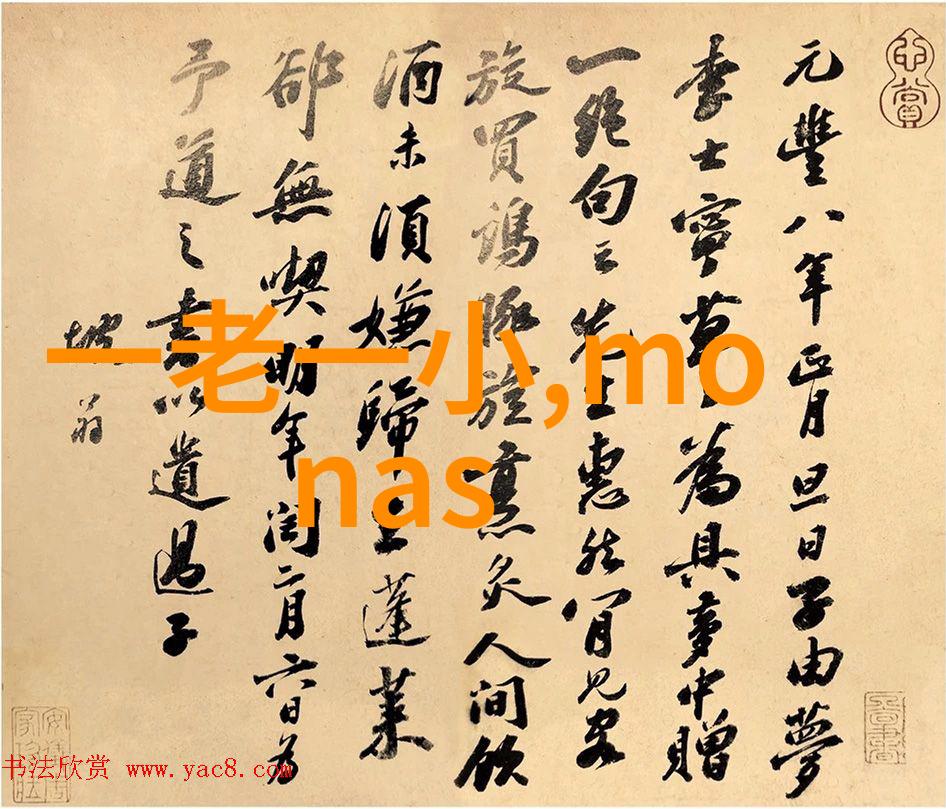 元豐八年正月旦日子由夢
李士寧草草為具夢中贈
一絕句云先生惠然肯見客
旋買鷄豚旋烹炙人間飲
酒未須嫌歸去蓬萊
卻無喫明年閏二月六日為
予道之書以遺過子
坡翁
一老一小,mo
nas
书法欣赏 www.yac8.com